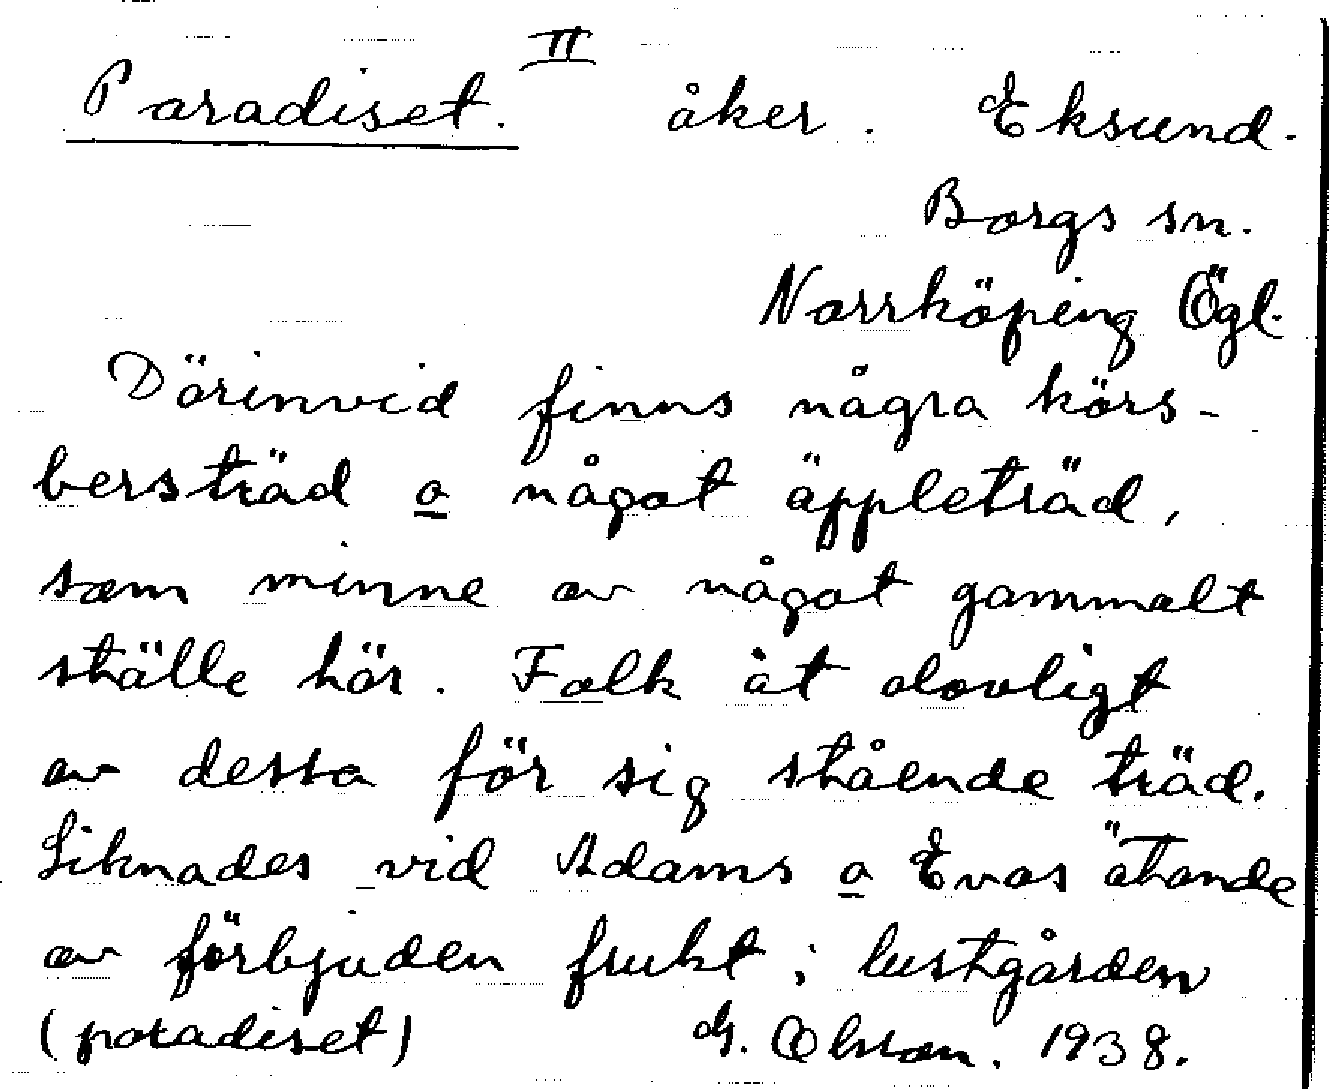 Paradiset. II åker. Eksund.
Borgs sn.
Norrköping Ögl.
Därinvid finns några körs-
bersträd o något äppleträd,
som minne av något gammalt
ställe här. Folk åt olovligt
av dessa för sig stående träd.
Liknades vid Adams o Evas ätande
av förbjuden frukt i lustgården
(paradiset) G. Olsson. 1938.